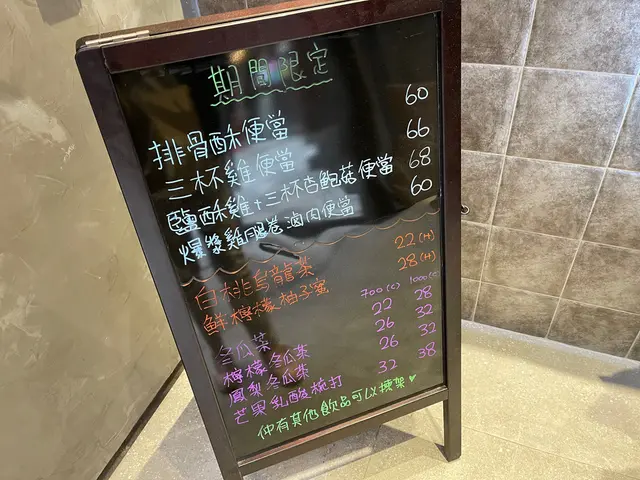 期間限定
排骨酥便當 60
三杯雞便當 66
鹽酥雞+三杯杏鮑菇便當 68
爆漿雞腿卷滷肉便當 60
白桃烏龍茶 22(H)
鮮檸檬柚子蜜 28(H)
700(C) 1000(C)
冬瓜茶 22 28
檸檬冬瓜茶 26 32
鳳梨冬瓜茶 26 32
芒果乳酸梳打 32 38
仲有其他飲品可以揀架♥